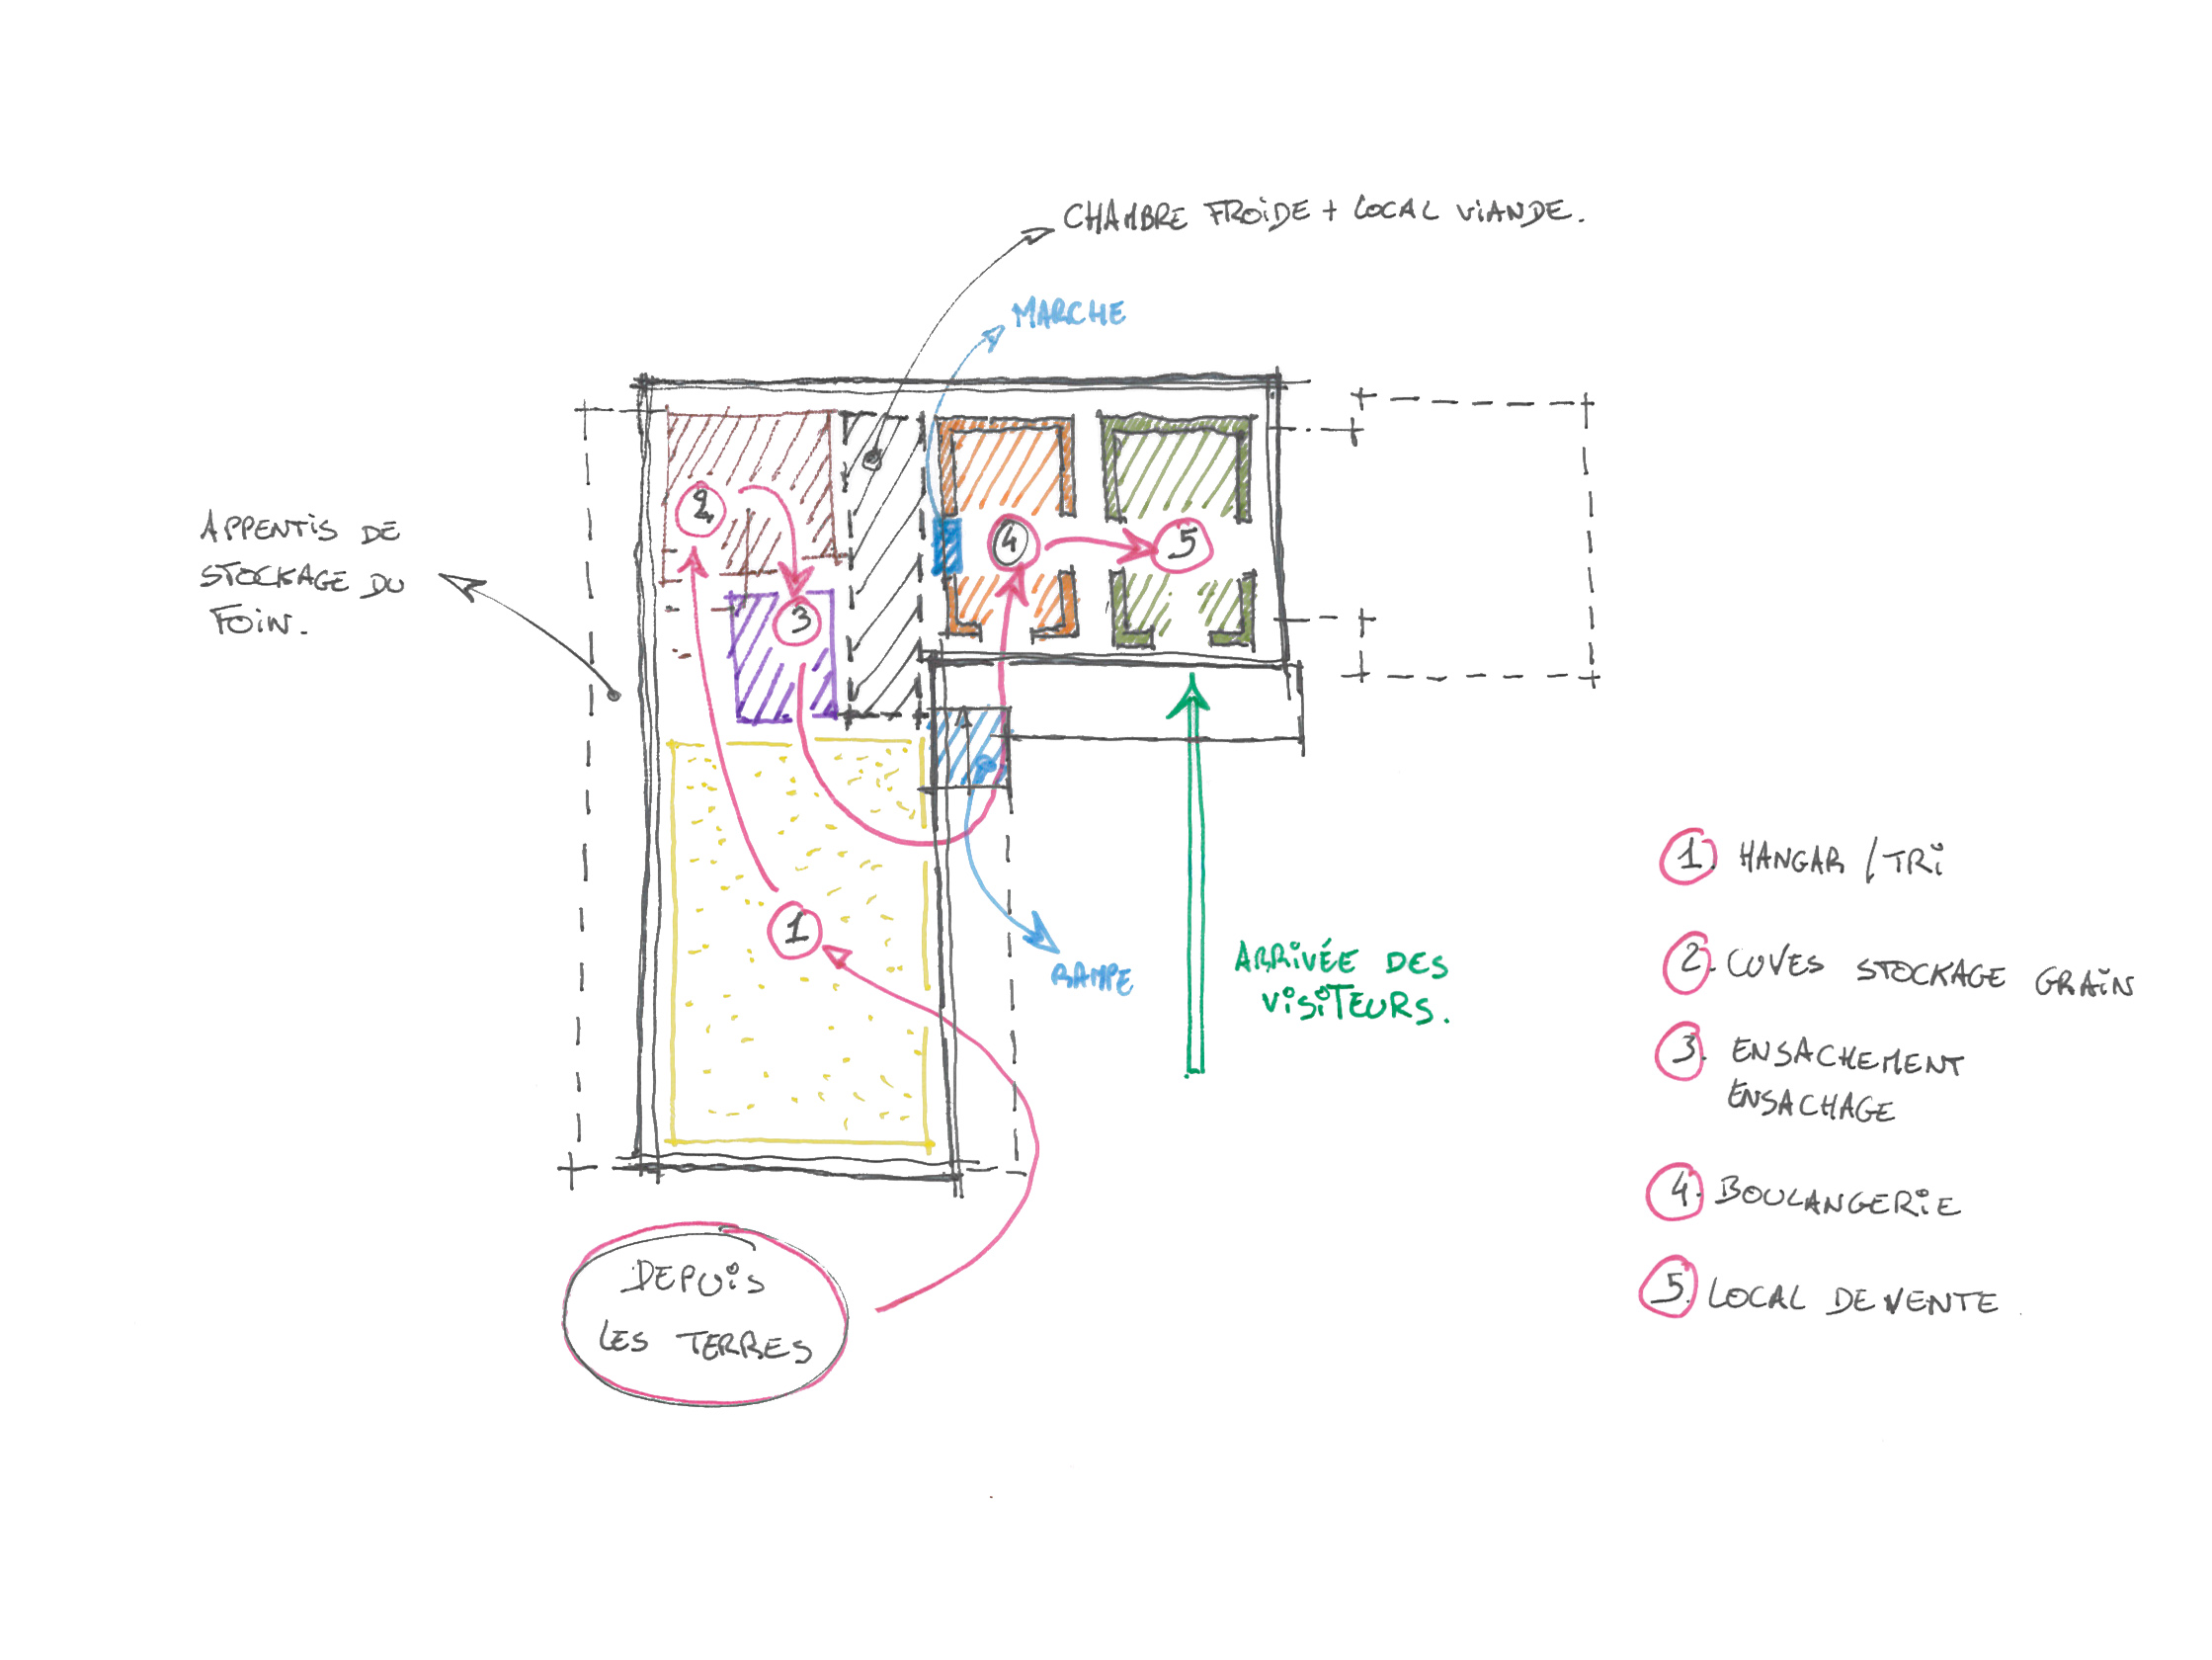 CHAMBRE FROIDE + LOCAL VIANDE.
MARCHE
APPENTIS DE
STOCKAGE DU
FOIN.
2
4
5
3
1
RAMPE
ARRIVÉE DES
VISITEURS.
DEPUIS
LES TERRES
1. HANGAR / TRI
2. CUVES STOCKAGE GRAIN
3. ENSACHEMENT
ENSACHAGE
4. BOULANGERIE
5. LOCAL DE VENTE